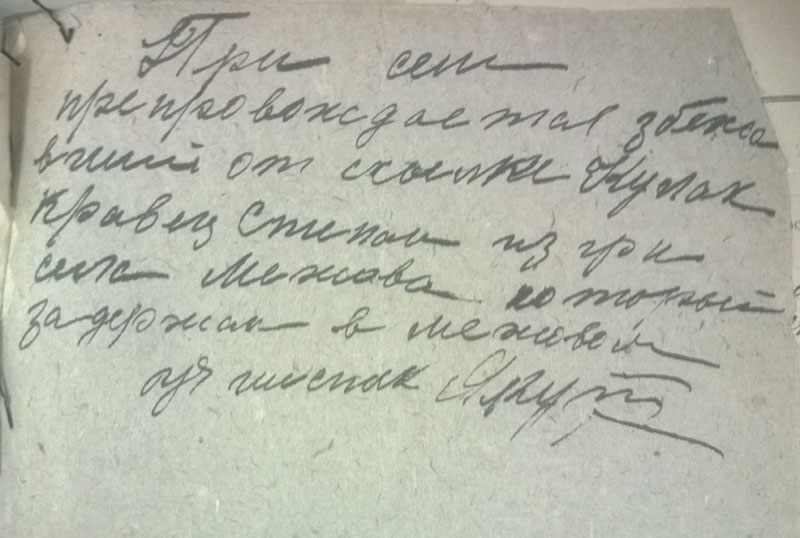 При сем
препровождается збежа
вший от ссылке Кулак
Кравец Степан из
села Межова который
задержан в межовом